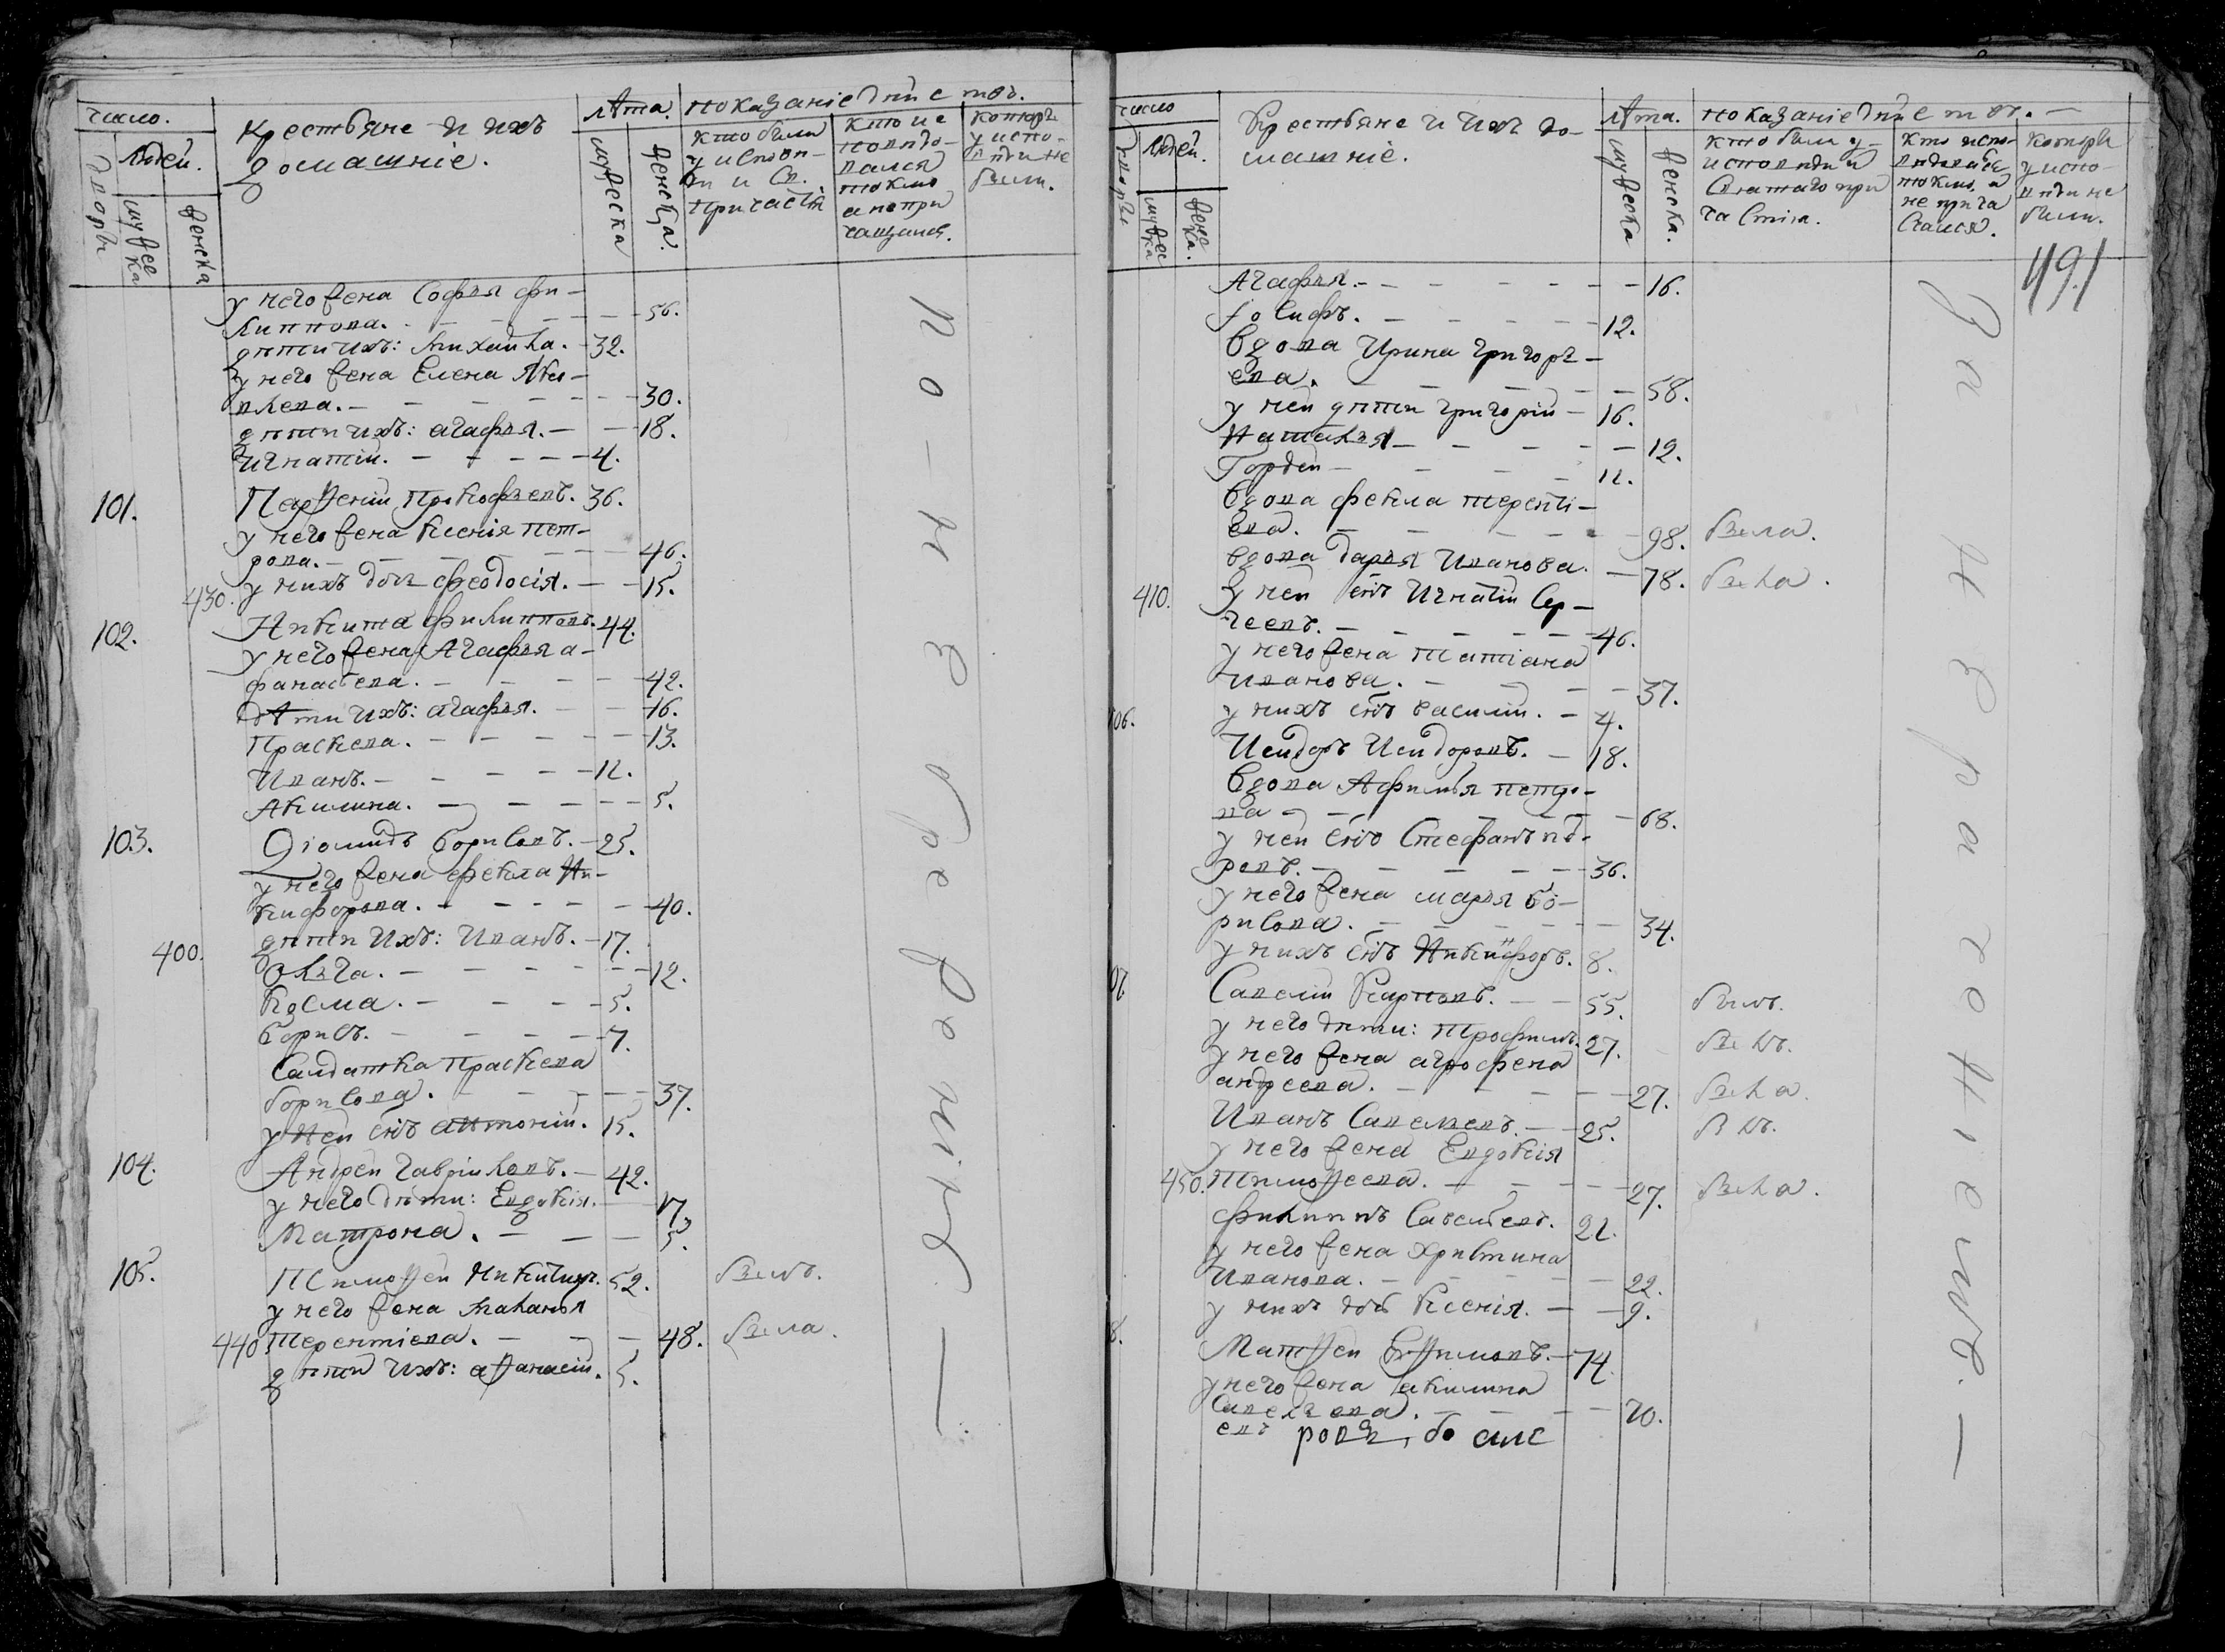 число.
людей.
дворы
мужеска
женска
крестьяне и ихъ
домашніе.
лѣта.
мужеска
женска.
показаніе дѣйств.
кто были
у испов-
ди и Св.
причастія
кто ис
повѣдо-
вался
токмо
а не при
чащался.
которы
у испо-
вѣди не
были.
у него жена Софья фи-
липпова. 56.
дѣти ихъ: Михаила. 32.
у него жена Елена Яко-
влева. 30.
дѣти ихъ: агафья. 18.
игнатій. 4.
101. Парѳеній Прокофьевъ. 36.
у него жена Ксенія пет-
рова. 46.
430. у нихъ дочь феодосія. 15.
102. Никита филипповъ. 44.
у него жена Агафья а-
фанасьева. 42.
дѣти ихъ: агафья. 16.
Праскева. 13.
Иванъ. 11.
Акилина. 5.
103. Діомидъ борисовъ. 25.
у него жена фекла Ни-
кифорова. 40.
400. дѣти ихъ: Иванъ. 17.
Ольга. 12.
Косма. 5.
борисъ. 7.
Салдатка Праскева
борисова. 37.
у ней сынъ антоній. 15.
104. Андрей гавриловъ. 42.
у него дѣти: Евдокія. 17.
Матрона. 5.
105. Тимоѳей Никитинъ. 52. былъ.
у него жена Маланья
440. терентіева. 48. была.
дѣти ихъ: аѳанасій. 5.
по-небреженію —
число
людей.
дворы
мужеска
женска.
Крестьяне и ихъ до-
машніе.
лѣта.
мужеска
женска.
показаніе дѣйств. —
кто были у
исповѣди и
Святаго при
частія.
кто испо-
вѣдовался
токмо, а
не прича
стился.
которы
у испо-
вѣди не
были.
491
Агафья. 16.
Іосифъ. 12.
вдова Ирина григорь-
ева. 58.
у ней дѣти григорій 16.
Наталья 12.
Гордѣй 11.
вдова фекла теренті-
ева. 98. была.
вдова дарья Иванова. 78. была.
410. у ней сынъ Игнатій Сер-
геевъ. 46.
у него жена татіана
Иванова. 37.
у нихъ сынъ василій. 4.
106. Исидоръ Исидоровъ. 18.
вдова Афимья петро-
ва 68.
у ней сынъ Стефанъ
ровъ. 36.
у него жена марья бо-
рисова. 34.
у нихъ сынъ Никифоръ. 8.
07. Савелій Карповъ. 55. былъ.
у него дѣти: трофимъ. 27. былъ.
у него жена агрофена
андреева. 27. была.
Иванъ Савельевъ. 25. былъ.
у него жена Евдокія
450. Тимоѳеева. 27. была.
филиппъ Савельевъ. 21.
у него жена христина
Иванова. 22.
у нихъ дочь Ксенія. 9.
8. Матѳей Евѳимовъ. 74.
у него жена акилина
Савельева. 70.
за нерачениемъ. —